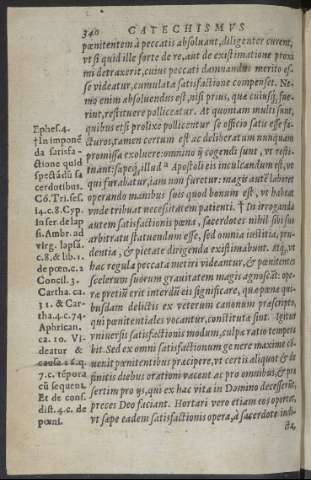 340 CATECHISMVS
pœnitentem à peccatis absoluant, diligenter curent,
vt si quid ille forte de re, aut de existimatione proxi
mi detraxerit, cuius peccati damnandus merito es-
se videatur, cumulata satisfactione compenset. Ne-
mo enim absoluendus est, nisi prius, quæ cuiusq; fue-
rint, restituere polliceatur. At quoniam multi sunt,
quibus etsi prolixe pollicentur se officio satis esse fa-
cturos, tamen certum est ac deliberatum nunquam
promissa exoluere: omnino ij cogendi sunt, vt resti-
tuant: sæpeq́; illud Apostoli eis inculcandum est, vt
qui furabatur, iam non furetur: magis autē laboret
operando manibus suis quod bonum est, vt habeat
vnde tribuat necessitatem patienti. † In irroganda
autem satisfactionis pœna, sacerdotes nihil sibi suo
arbitratu statuendum esse, sed omnia iustitia, pru-
dentia, & pietate dirigenda existimabunt. Atq́; vt
hac regula peccata metiri videantur, & pœnitentes
scelerum suorum grauitatem magis agnoscāt: ope-
ræ pretiū erit interdū eis significare, quæ pœnæ qui-
busdam delictis ex veterum canonum præscripto,
qui pœnitentiales vocantur, constitutæ sint. Igitur
vniuersæ satisfactionis modum, culpæ ratio tempera
bit. Sed ex omni satisfactionum genere maxime cō-
uenit pœnitentibus præcipere, vt certis aliquot & de
finitis diebus orationi vacent: ac pro omnibus, & præ
sertim pro ijs, qui ex hac vita in Domino decesserūt,
preces Deo faciant. Hortari vero etiam eos oportet,
vt sæpe eadem satisfactionis opera, à sacerdote indi-
cta,
Ephes. 4.
† In imponē
da satisfa-
ctione quid
spectādū sa
cerdotibus.
Cō. Tri. ses.
14. c. 8. Cyp.
in ser. de lap
si. Ambr. ad
virg. lapsā.
c. 8. & lib. 1.
de pœn. c. 2
Concil. 3.
Cartha. ca.
31. & Car-
tha. 4. c. 74.
Aphrican.
ca. 10. Vi-
deatur &
causa 26. q.
7. c. tēpora
cū sequent.
Et de cons.
dist. 4. c. de
pœni.